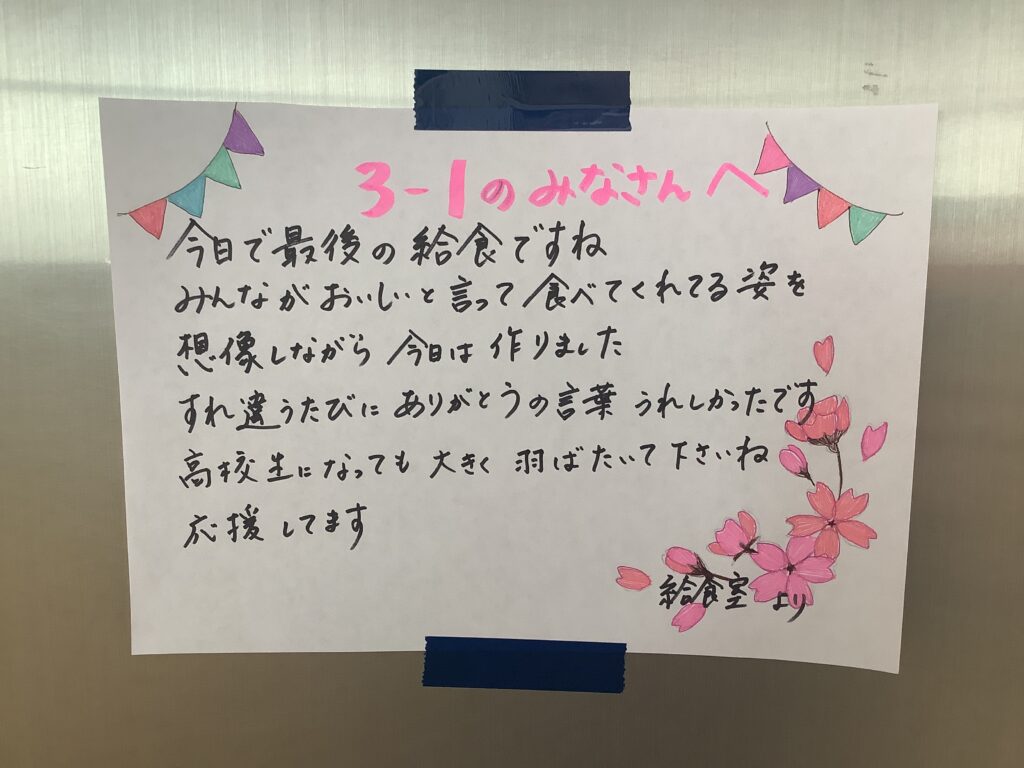 3-1のみなさんへ
今日で最後の給食ですね
みんながおいしいと言って食べてくれてる姿を
想像しながら今日は作りました
すれ違うたびにありがとうの言葉うれしかったです
高校生になっても大きく羽ばたいて下さいね
応援してます
給食室より